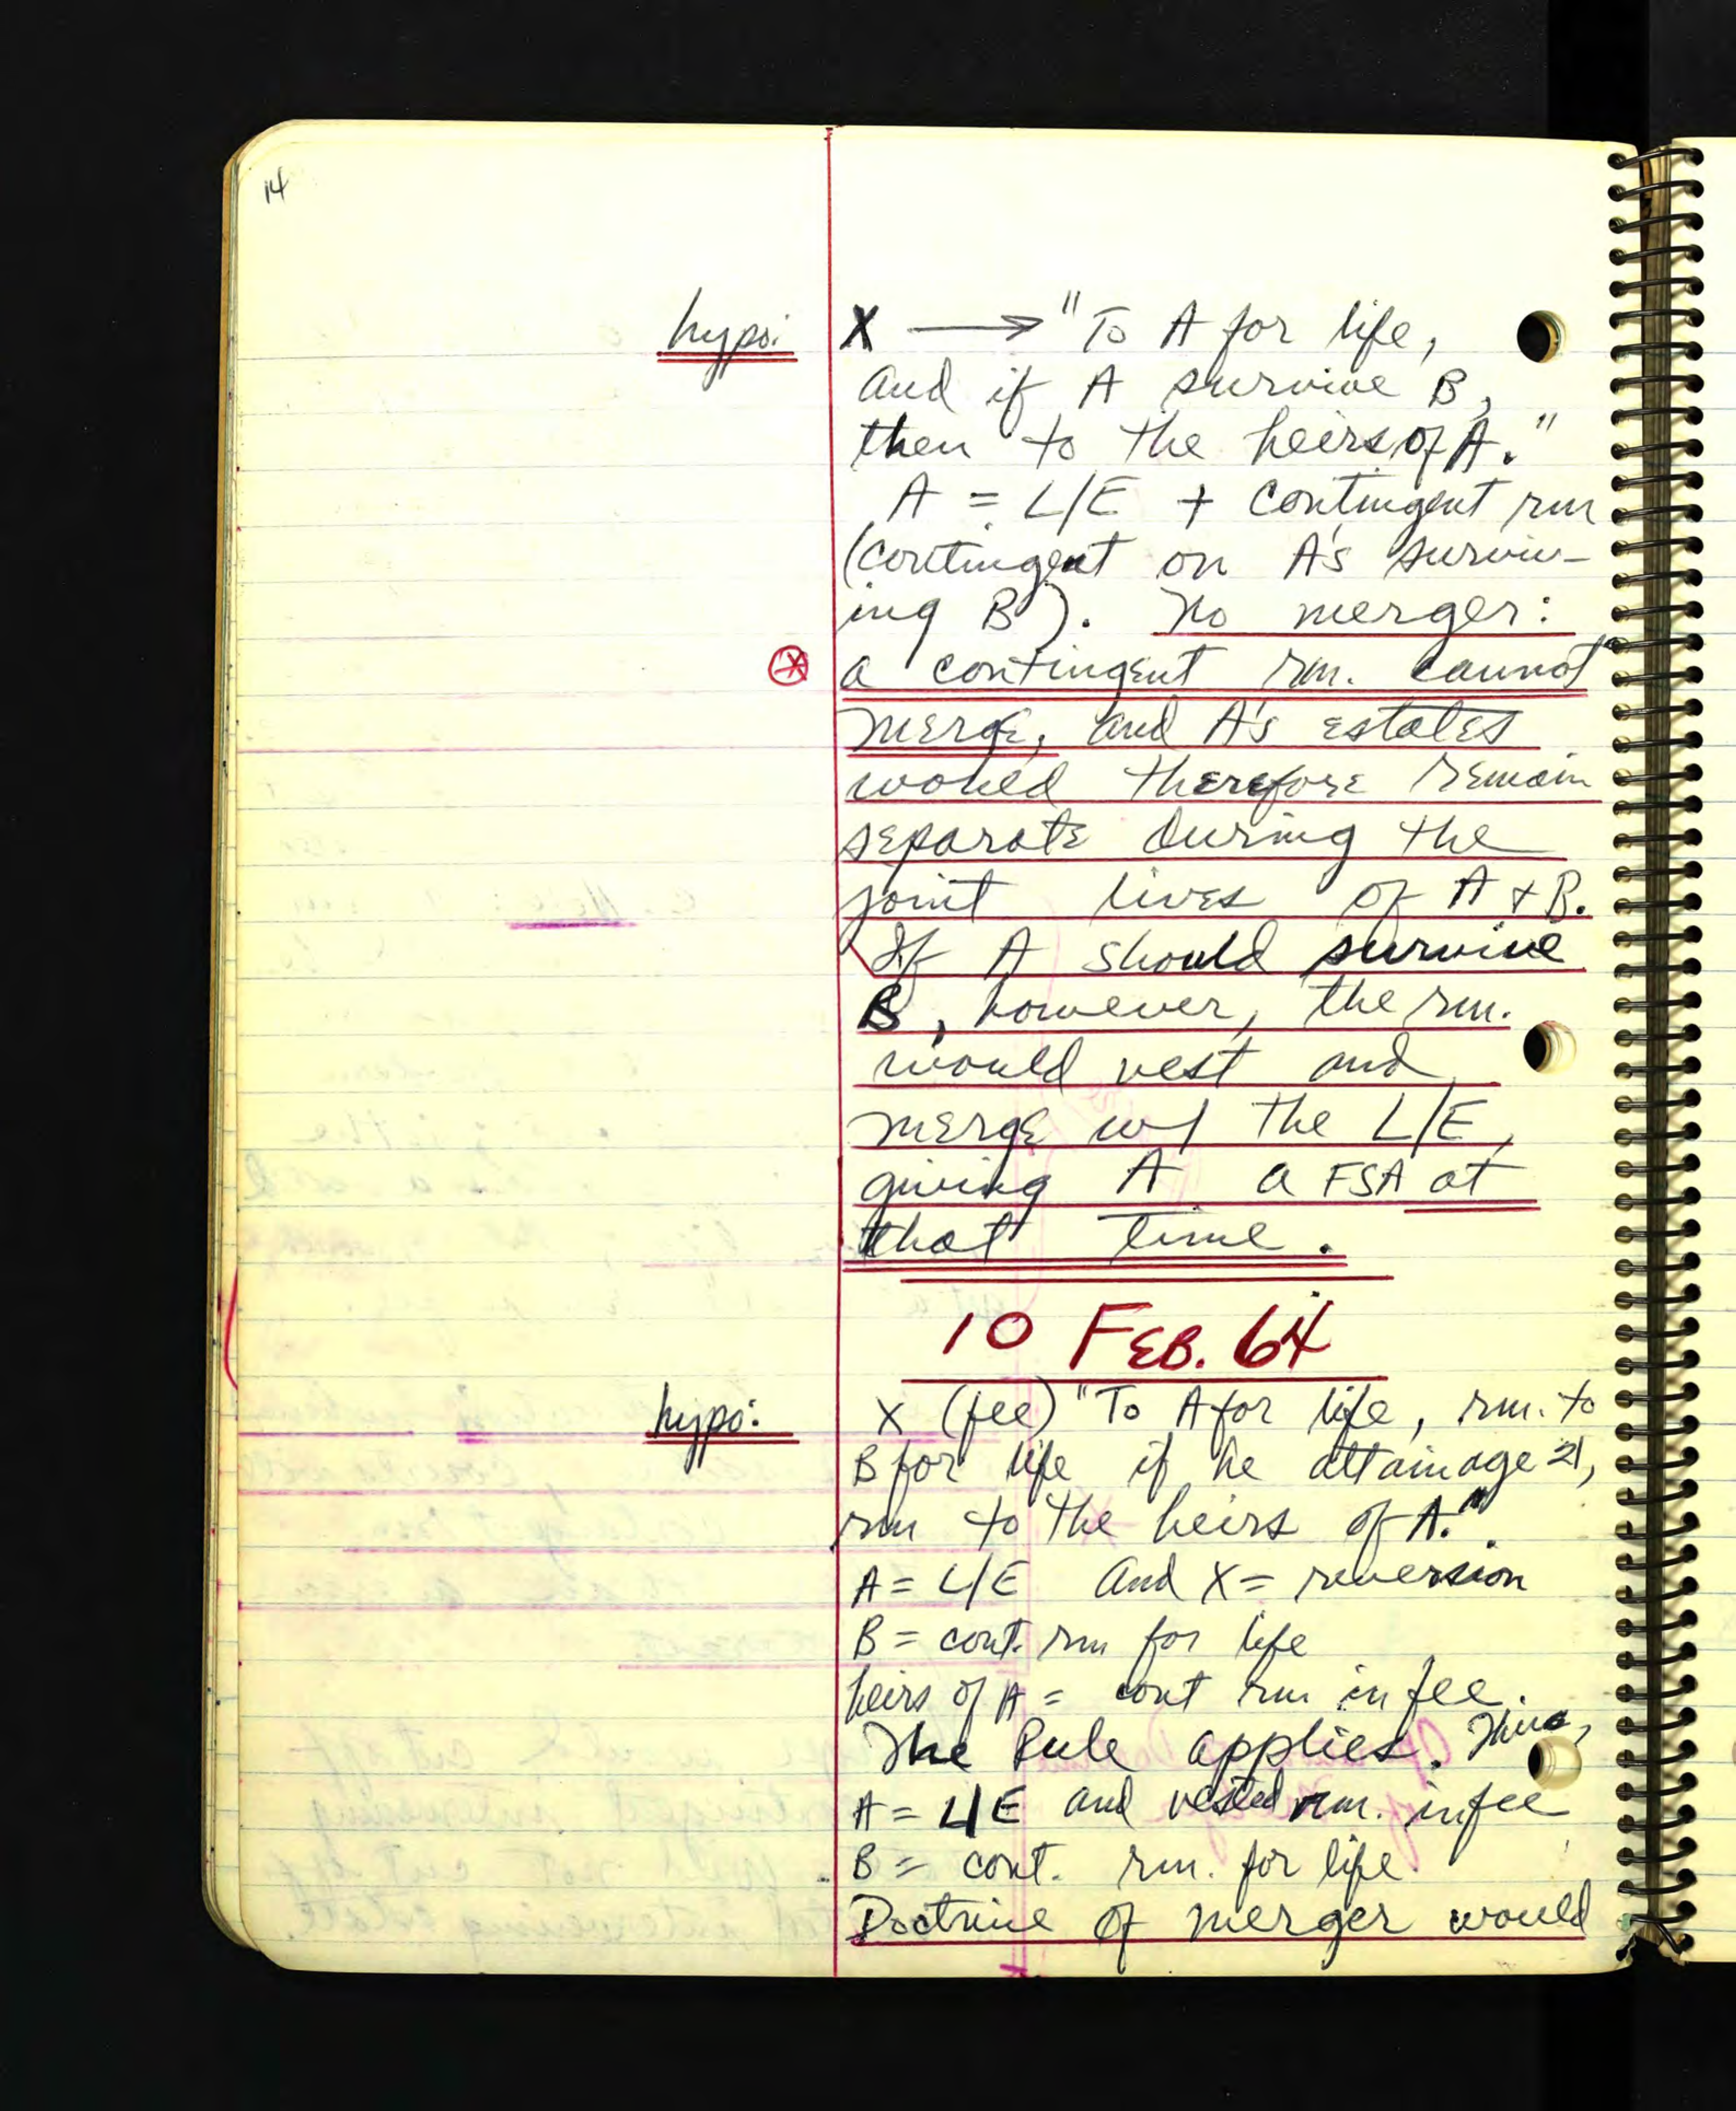 14
hypo: X → "To A for life,
and if A survive B,
then to the heirs of A."
A = L/E + contingent rm
(contingent on A's surviv-
ing B). No merger:
a contingent rm. cannot
merge, and A's estates
would therefore remain
separate during the
joint lives of A + B.
If A should survive
B, however, the rm.
would vest and
merge w/ the L/E,
giving A a FSA at
that time.
10 FEB. 64
hypo: X (fee) "To A for life, rm. to
B for life if he attain age 21,
rm to the heirs of A."
A = L/E and X = reversion
B = cont. rm for life
heirs of A = cont rm in fee.
The Rule applies. Thus,
A = L/E and vested rm. in fee
B = cont. rm. for life.
Doctrine of merger would